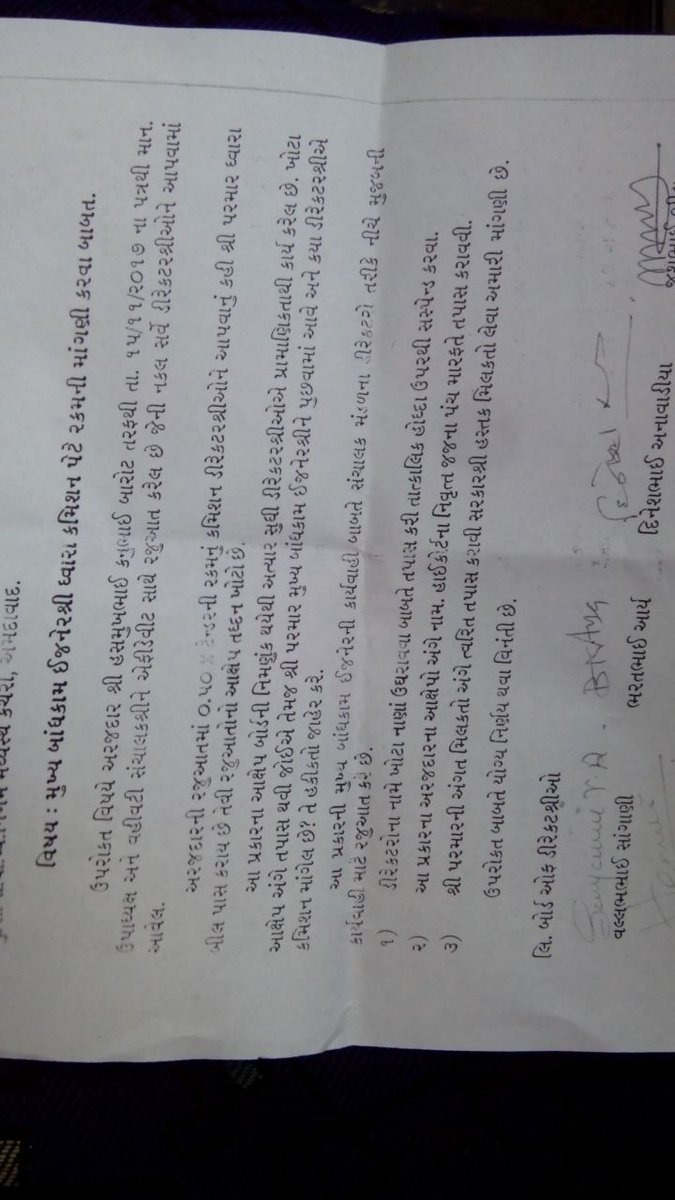 મધ્યસ્થ કચેરી, અમદાવાદ.
વિષય : મુખ્ય બાંધકામ ઈજનેરશ્રી ધ્વારા કમિશન પેટે રકમની માંગણી કરવા બાબત.
ઉપરોકત વિષયે અરજદાર શ્રી હસમુખભાઈ કનુભાઈ બારોટ તરફથી તા. ૧૫/૧૧/૨૦૧૭ ના પત્રથી માન.
ઉપાધ્યક્ષ અને વહીવટી સંચાલકશ્રીને એફીડેવીટ સાથે રજુઆત કરેલ છે જેની નકલ સર્વે ડીરેકટરશ્રીઓને આપવામાં
આવેલ.
અરજદારની રજુઆતમાં ૦.૫૦% ટેન્ડરની રકમનું કમિશન ડીરેકટરશ્રીઓને આપવાનું કહી શ્રી પરમાર ધ્વારા
બીલ પાસ કરાય છે તેવી રજુઆતોનો આક્ષેપ તદ્દન ખોટો છે.
આ પ્રકારના આક્ષેપ બોર્ડની નિમણુંક થયેથી અત્યાર સુધી ડીરેકટરશ્રીઓએ પ્રામાણિકતાથી કાર્ય કરેલ છે. ખોટા
આક્ષેપ અંગે તપાસ થવી જોઈએ તેમજ શ્રી પરમાર મુખ્ય બાંધકામ ઈજનેરીને પુછવામાં આવે અને કયા ડીરેકટરશ્રીએ
કમિશન માંગેલ છે? તે હકીકતો જાહેર કરે.
આ પ્રકારની મુખ્ય બાંધકામ ઈજનેરની કાર્યવાહી બાબતે સંચાલક મંડળના ડીરેકટરો તરીકે નીચે મુજબની
કાર્યવાહી માટે રજુઆત કરે છે.
૧) ડીરેકટરોના નામે ખોટા નાણાં ઉઘરાવવા બાબતે તપાસ કરી તાત્કાલિક હોદ્દા ઉપરથી સસ્પેન્ડ કરવા.
૨) આ પ્રકારના અરજદારના આક્ષેપો અંગે નામ. હાઈકોર્ટના નિવૃત્ત જજના પંચ મારફતે તપાસ કરાવવી.
૩) શ્રી પરમારની અંગત મિલકતો અંગે ત્વરિત તપાસ કરાવી સરકારશ્રી હસ્તક મિલકતો લેવા અમારી માંગણી છે.
ઉપરોકત બાબતે યોગ્ય નિર્ણય થવા વિનંતી છે.
લિ. બોર્ડ ઓફ ડીરેકટરશ્રીઓ
વલ્લભભાઈ સાંગાણી ભરતભાઈ આર્ય દિનેશભાઈ અનાવાડીયા